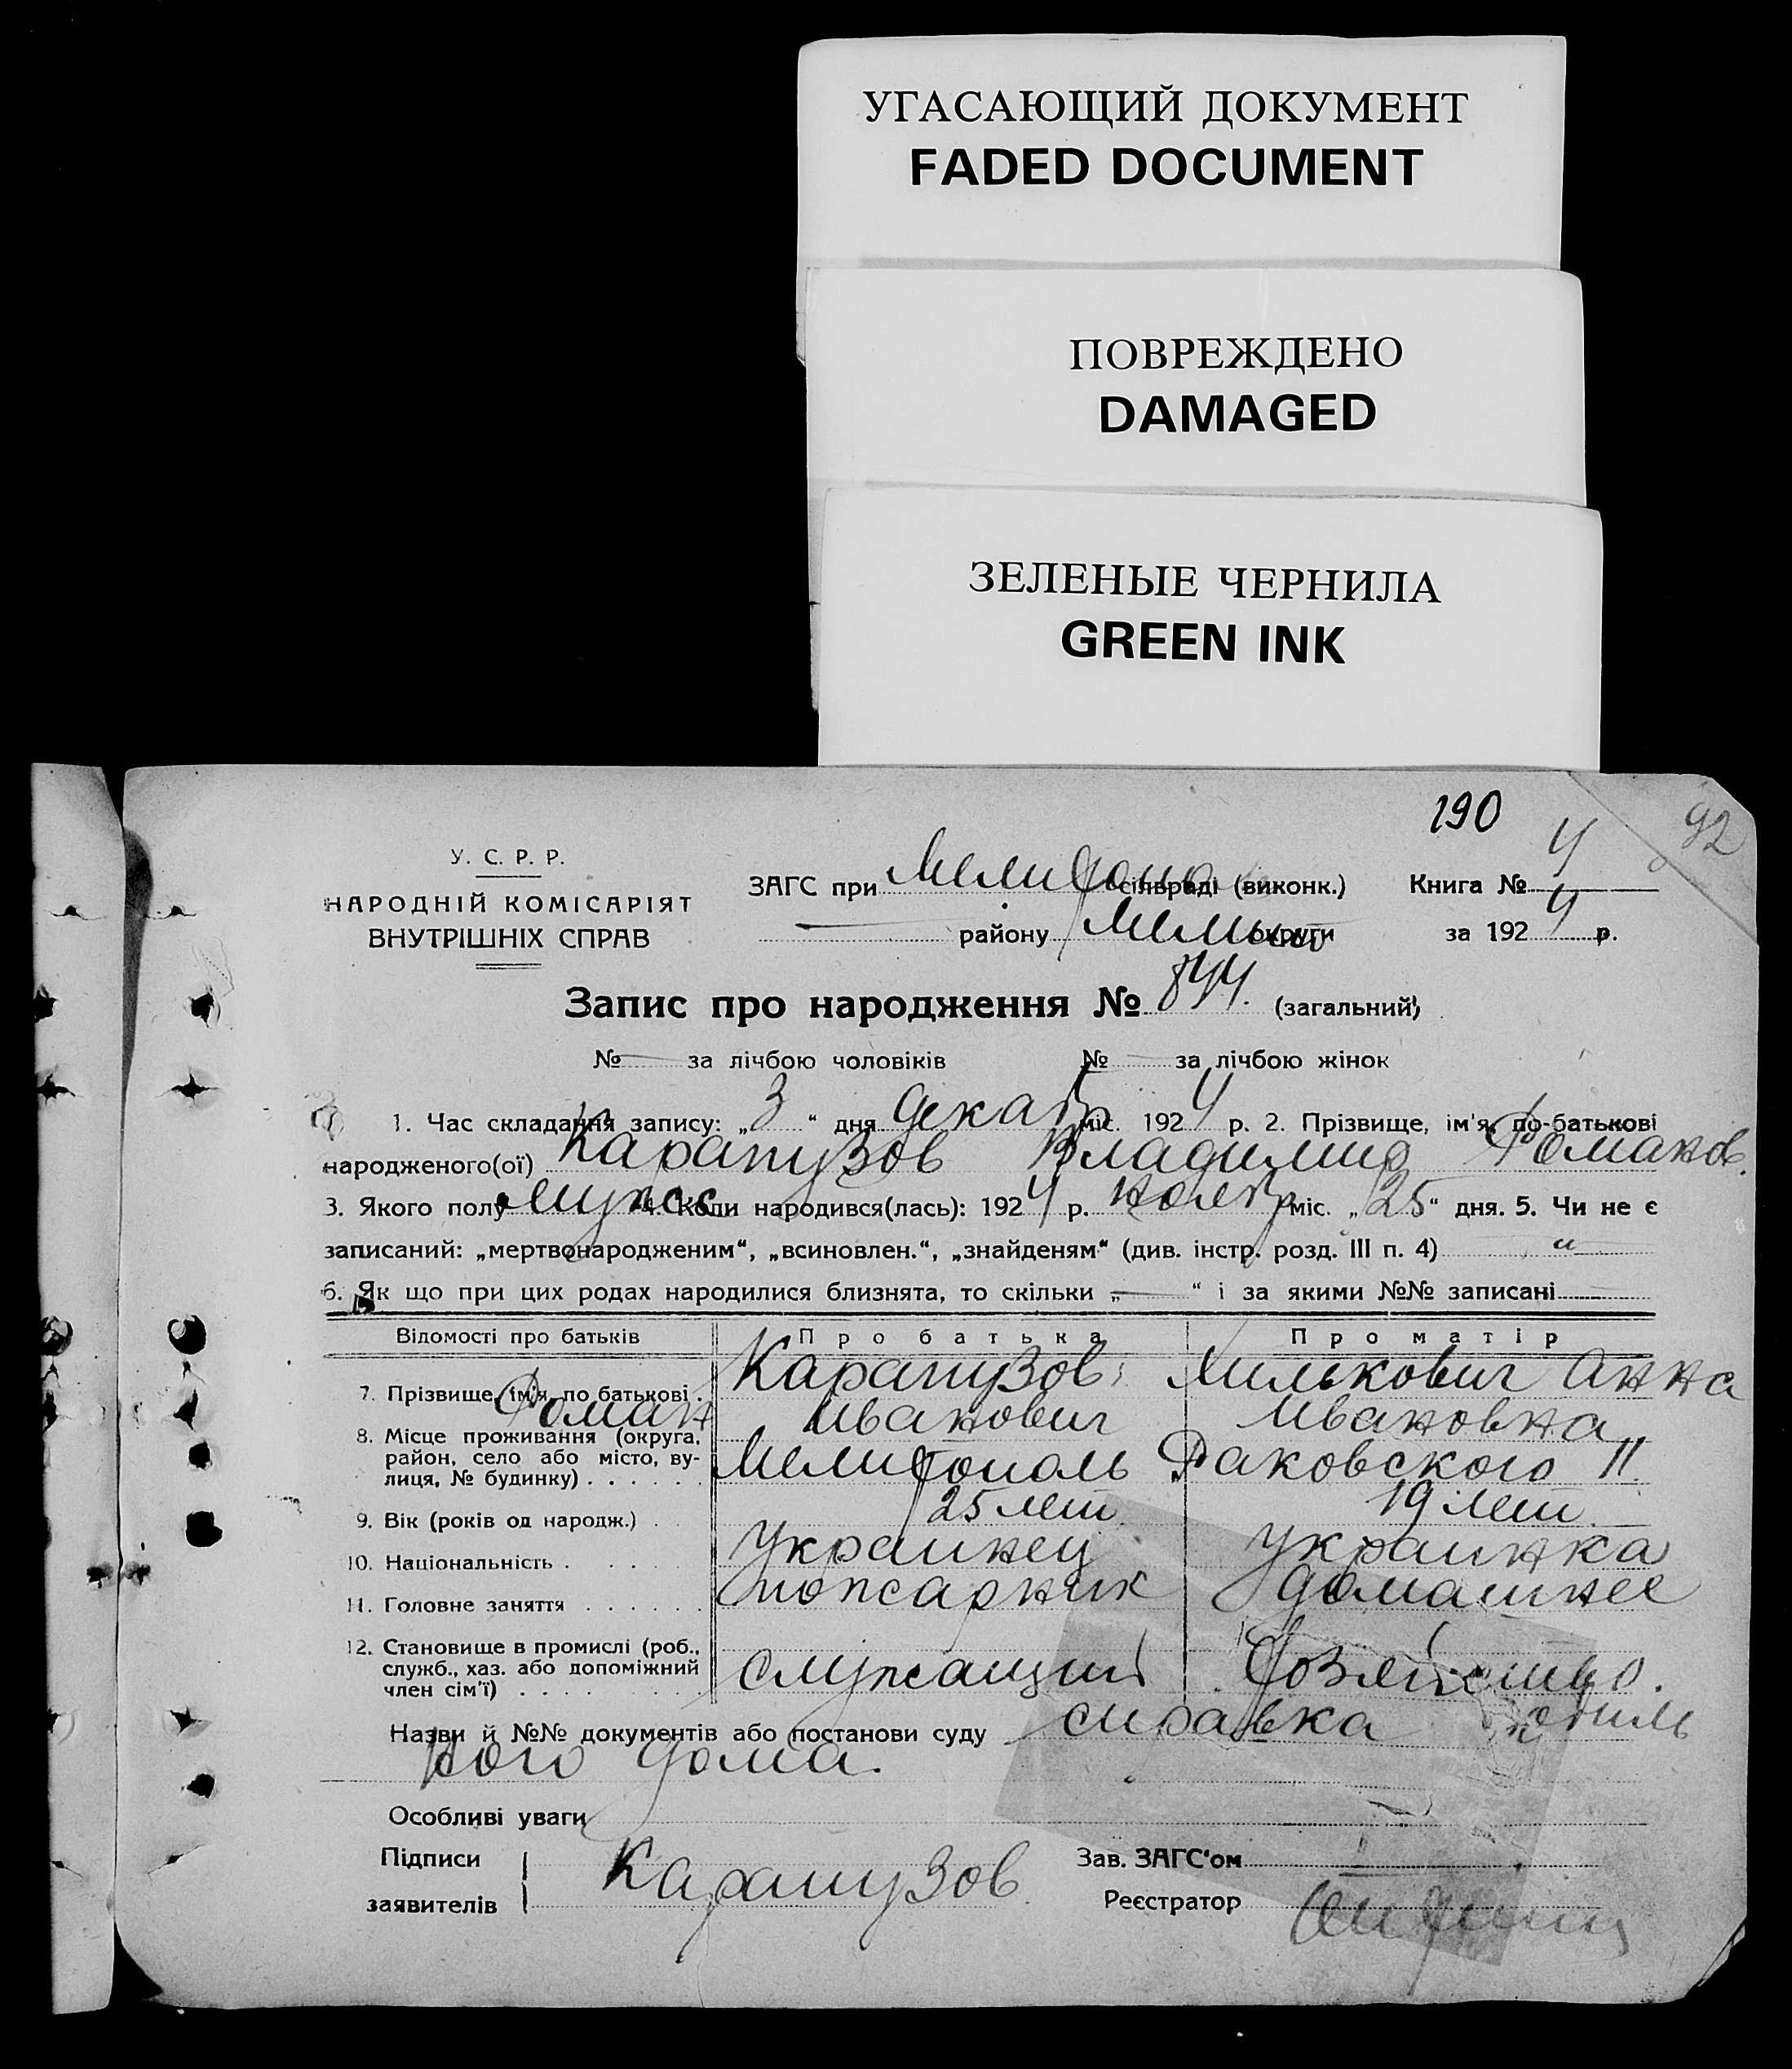 УГАСАЮЩИЙ ДОКУМЕНТ
FADED DOCUMENT
ПОВРЕЖДЕНО
DAMAGED
ЗЕЛЕНЫЕ ЧЕРНИЛА
GREEN INK
190
92
У. С. Р. Р.
НАРОДНІЙ КОМІСАРІЯТ
ВНУТРІШНІХ СПРАВ
ЗАГС при Мелитопо сільвраді (виконк.) Книга № 4
району округи за 1924 р.
Запис про народження № 844. (загальний)
№ за лічбою чоловіків № за лічбою жінок
1. Час складання запису: „3“ дня декаб міс. 1924 р. 2. Прізвище, ім'я, по-батькові
народженого(ої) Карапузов Владимир Романов.
3. Якого полу мужск 4. Коли народився(лась): 1924 р. нояб міс. „25“ дня. 5. Чи не є
записаний: „мертвонародженим“, „всиновлен.“, „знайденям“ (див. інстр. розд. III п. 4) "
6. Як що при цих родах народилися близнята, то скільки „—“ і за якими №№ записані
Відомості про батьків Про батька Про матір
7. Прізвище, ім'я, по батькові . Карапузов Милькович Анна
Роман Иванович Ивановна
8. Місце проживання (округа, район, село або місто, вулиця, № будинку) . . . . . . Мелитополь Раковского 11
9. Вік (років од народж.) . 25 лет 19 лет
10. Національність . . . . Украинец Украинка
11. Головне заняття . . . . . . пожарник домашнее
12. Становище в промислі (роб., служб., хаз. або допоміжний член сім'ї) . . . . служащий хозяйство.
Назви й №№ документів або постанови суду справка родиль
ного дома.
Особливі уваги
Підписи Зав. ЗАГС'ом
заявителів Карапузов Реєстратор